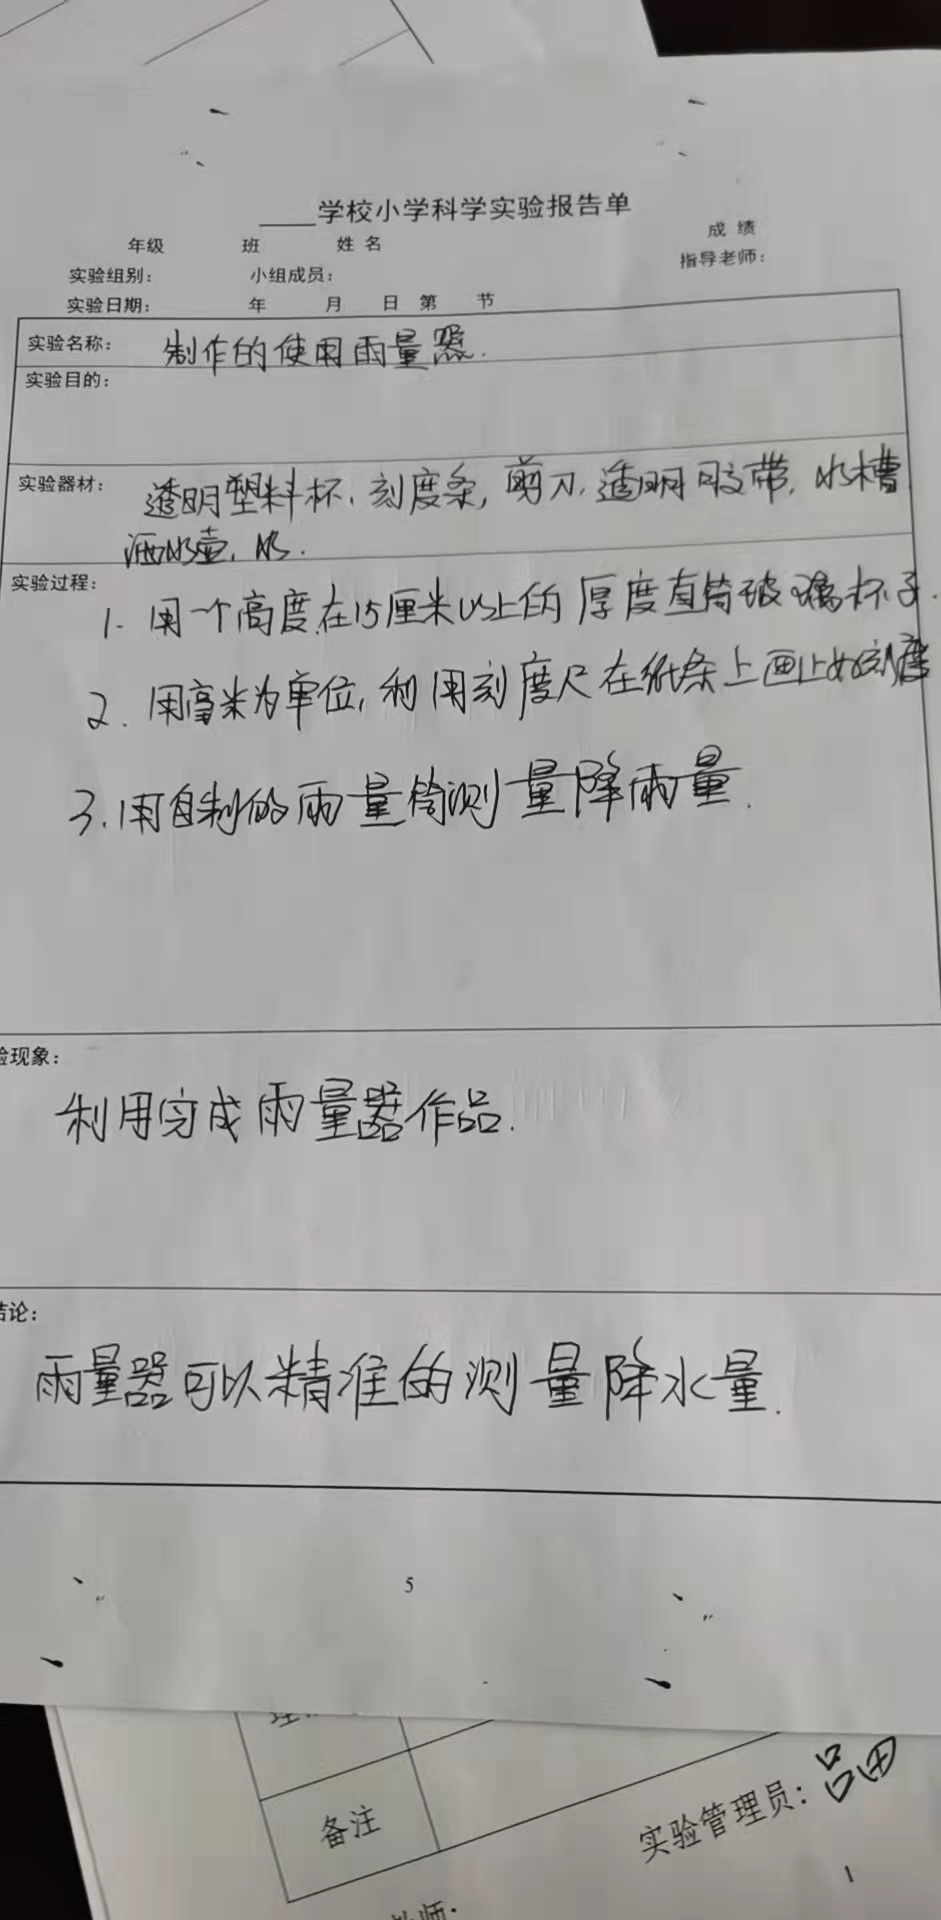 ____学校小学科学实验报告单
年级 班 姓名 成绩
实验组别： 小组成员： 指导老师：
实验日期： 年 月 日 第 节
实验名称： 制作的使用雨量器.
实验目的：
实验器材： 透明塑料杯、刻度条，剪刀，透明胶带，水槽
洒水壶，水.
实验过程：
1. 用一个高度在15厘米以上的厚度直筒玻璃杯子.
2. 用毫米为单位，利用刻度尺在纸条上画上刻度
3. 用自制的雨量筒测量降雨量.
验现象：
利用完成雨量器作品.
结论：
雨量器可以精准的测量降水量.
5
备注
实验管理员：吕田
1
老师：